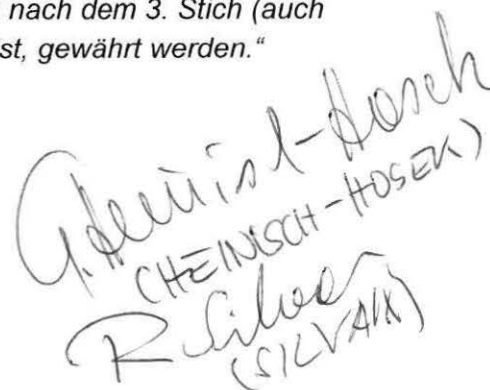 nach dem 3. Stich (auch
st, gewährt werden.“
G. Heinisch-Hosek
(HEINISCH-HOSEK)
R. Silvan
(SILVAN)